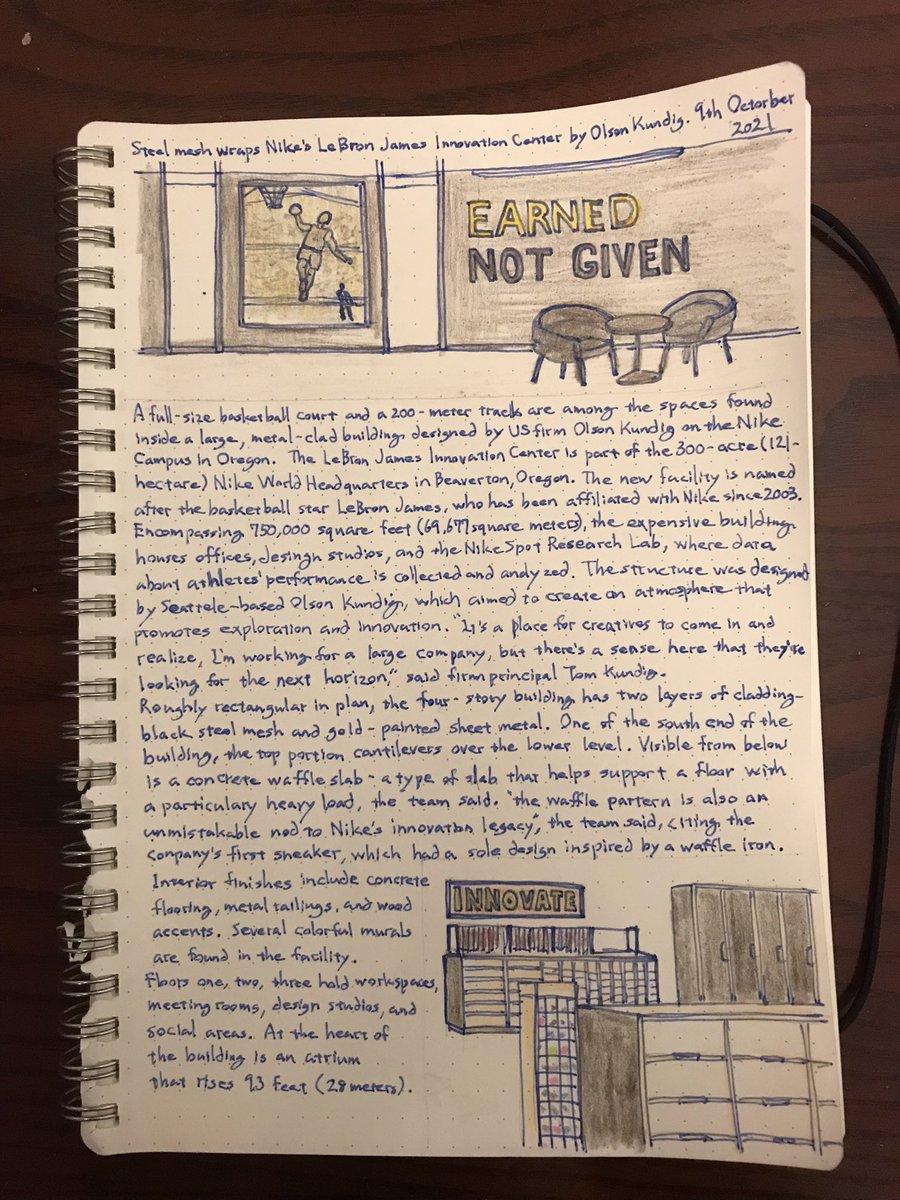 Steel mesh wraps Nike's LeBron James Innovation Center by Olson Kundig. 9th Octorber
2021
EARNED
NOT GIVEN
A full-size basketball court and a 200-meter track are among the spaces found
inside a large, metal-clad building designed by US firm Olson Kundig on the Nike
Campus in Oregon. The LeBron James Innovation Center is part of the 300-acre (121-
hectare) Nike World Headquarters in Beaverton, Oregon. The new facility is named
after the basketball star LeBron James, who has been affiliated with Nike since 2003.
Encompassing 750,000 square feet (69,677 square meters), the expensive building
houses offices, desingn studios, and the Nike Spot Research Lab, where data
about athletes' performance is collected and analyzed. The structure was designed
by Seattele-based Olson Kundig, which aimed to create an atmosphere that
promotes exploration and innovation. "It's a place for creatives to come in and
realize, I'm working for a large company, but there's a sense here that they're
looking for the next horizon," said firm principal Tom Kundig.
Roughly rectangular in plan, the four-story building has two layers of cladding-
black steel mesh and gold-painted sheet metal. One of the south end of the
building, the top portion cantilevers over the lower level. Visible from below
is a concrete waffle slab - a type of slab that helps support a floor with
a particulary heavy load, the team said. "the waffle pattern is also an
unmistakable nod to Nike's innovation legacy", the team said, citing the
conpany's first sneaker, which had a sole design inspired by a waffle iron.
Interior finishes include concrete
flooring, metal railings, and wood
accents. Several colorful murals
are found in the facility.
Floors one, two, three hold workspaces,
meeting rooms, design studios, and
social areas. At the heart of
the building is an atrium
that rises 93 feet (28 meters).
INNOVATE